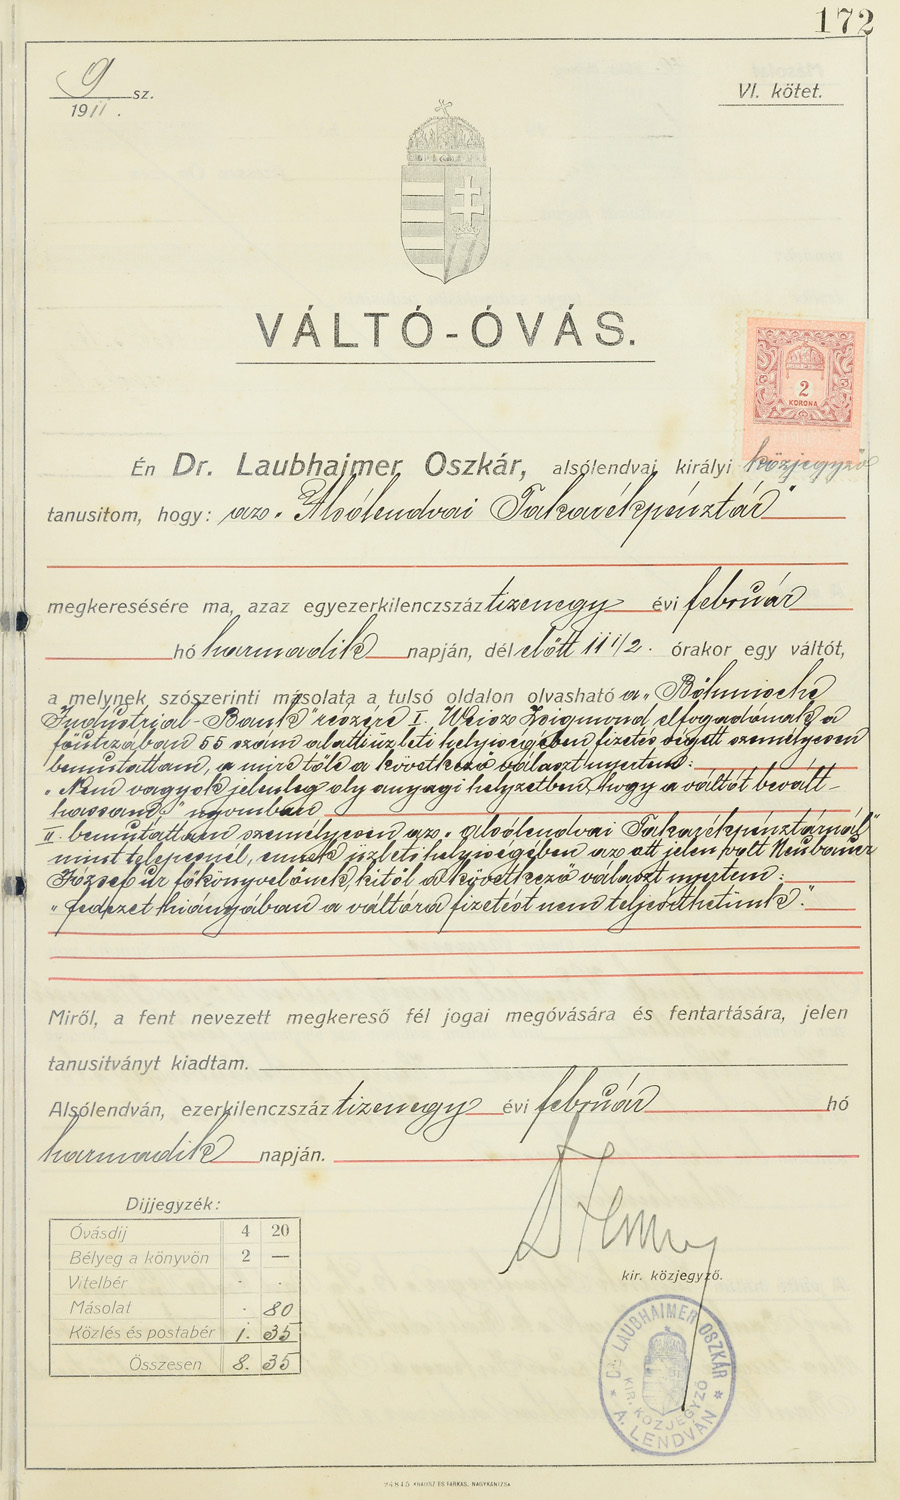 172
9 sz.
1911.
VI. kötet.
VÁLTÓ-ÓVÁS.
2
KORONA
Én Dr. Laubhajmer Oszkár, alsólendvai királyi közjegyző
tanusitom, hogy: az „Alsólendvai Takarékpénztár"
megkeresésére ma, azaz egyezerkilenczszáz tizenegy évi február
hó harmadik napján, dél előtt 11 1/2. órakor egy váltót,
a melynek szószerinti másolata a tulsó oldalon olvasható a „Böhmische
Industrial-Bank" részére I. Weisz Zsigmond elfogadónak a
főutczában 55 szám alatti üzleti helyiségében fizetés végett személyesen
bemutattam, a mire tőle a következő választ nyertem:
„Nem vagyok jelenleg oly anyagi helyzetben, hogy a váltót bevált-
hassam." nyomban
II. bemutattam személyesen az „Alsólendvai Takarékpénztárnál"
mint telepesnél, ennek üzleti helyiségében az ott jelen volt Neubauer
József úr főkönyvelőnek, kitől a következő választ nyertem:
„fedezet hiányában a váltóra fizetést nem teljesíthetünk."
Miről, a fent nevezett megkereső fél jogai megóvására és fentartására, jelen
tanusitványt kiadtam.
Alsólendván, ezerkilenczszáz tizenegy évi február hó
harmadik napján.
Dijjegyzék:
Óvásdij 4 20
Bélyeg a könyvön 2 —
Vitelbér . .
Másolat . 80
Közlés és postabér 1. 35
Összesen 8. 35
kir. közjegyző.
Dr. LAUBHAIMER OSZKÁR
KIR. KÖZJEGYZŐ
* A. LENDVÁN *
24845 KRAUSZ ÉS FARKAS, NAGYKANIZSA